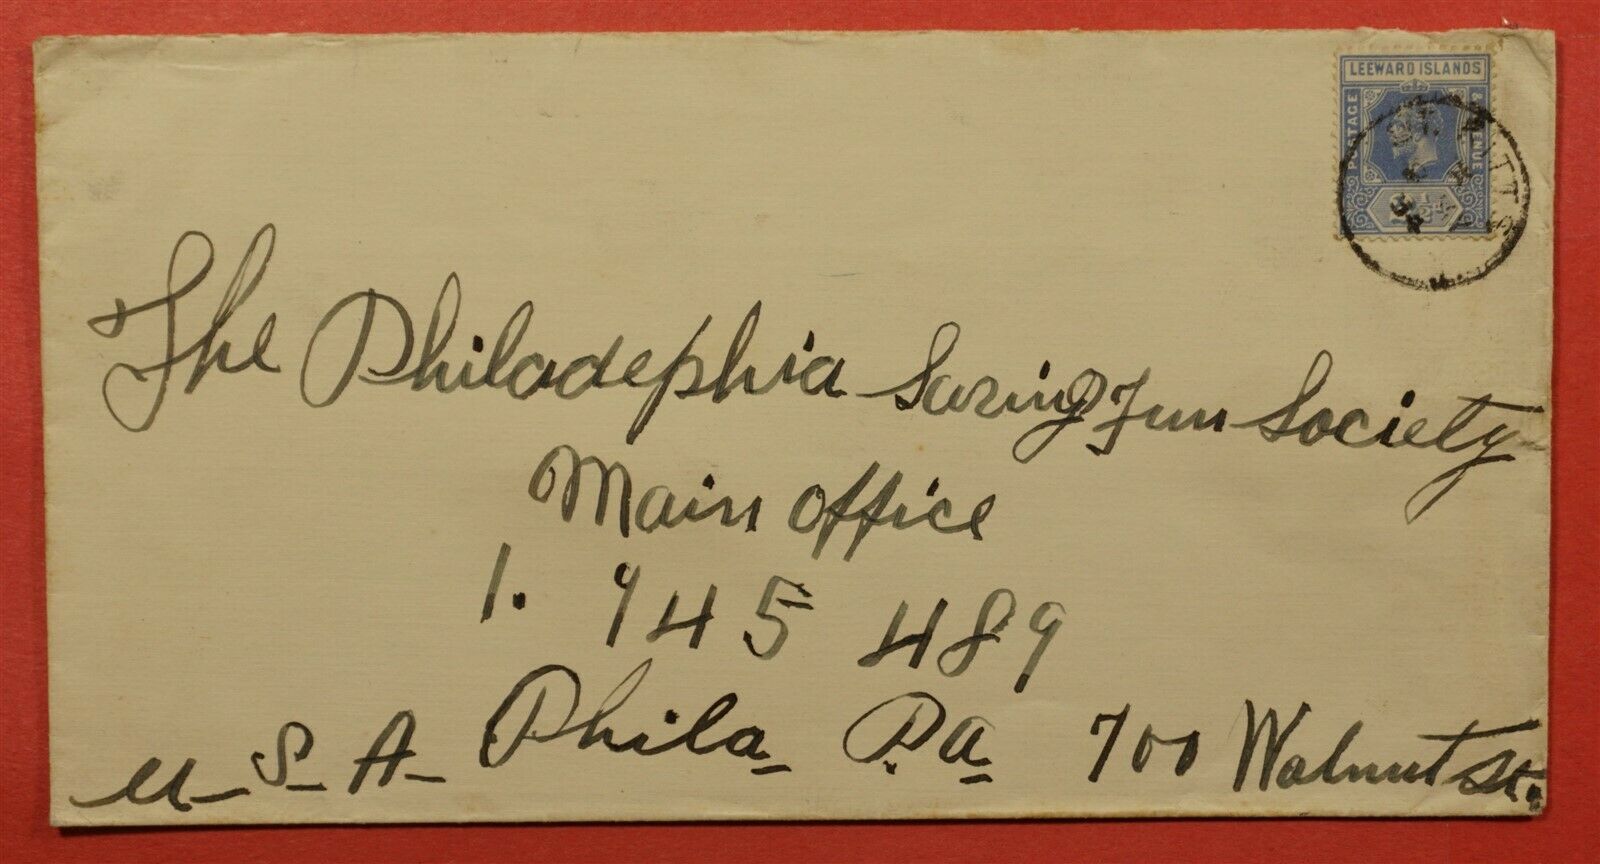 LEEWARD ISLANDS
POSTAGE & REVENUE
2½
ST. KITTS
The Philadephia Saving Fun Society
Main Office
1. 945 489
U-S-A- Phila- Pa 700 Walnut St.